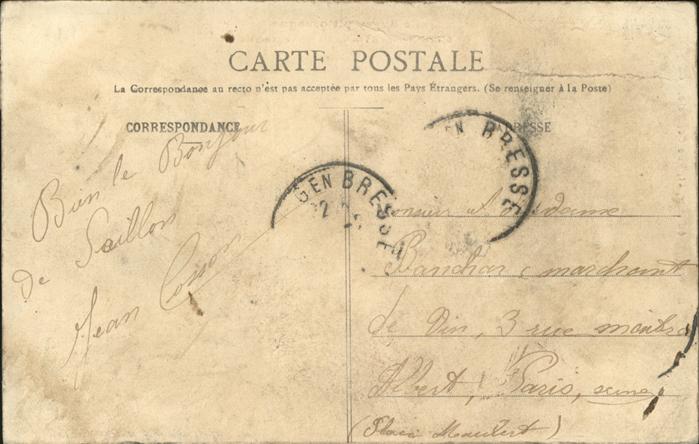 CARTE POSTALE
La Correspondance au recto n'est pas acceptée par tous les Pays Étrangers. (Se renseigner à la Poste)
CORRESPONDANCE
Bien le Bonjour
de Saillon
Jean
GEN BRESSE
EN BRESSE
RESSE
Monsieur Madame
marchant
de Vin, 3 rue
Albert, Paris, seine
(Place Maubert)